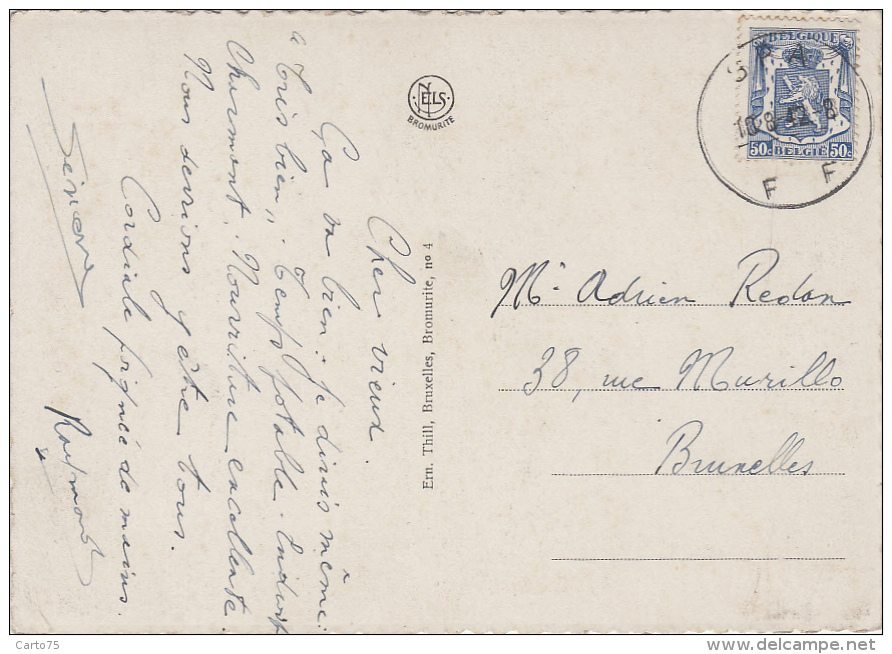 Cher vieux.
Ça va bien. Je dirais même:
"très bien". Temps potable. Endroit
charmant. Nourriture excellente.
Nous devrions y être tous.
Cordiale poignée de mains.
Raymond
NELS
BROMURITE
Ern. Thill, Bruxelles, Bromurite, nº 4
BELGIQUE
50c BELGIË 50c
SPA
10-8-42 8
F F
Mr Adrien Redon
38, rue Murillo
Bruxelles
Carto75
www.delcampe.net